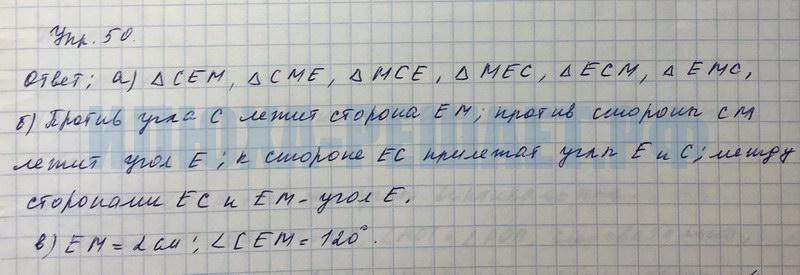 Упр. 50.
Ответ; а) △CEM, △CME, △MCE, △MEC, △ECM, △EMC,
б) Против угла C лежит сторона EM; против стороны CM
лежит угол E; к стороне EC прилежат углы E и C; между
сторонами EC и EM - угол E.
в) EM = 2 см; ∠CEM = 120°.